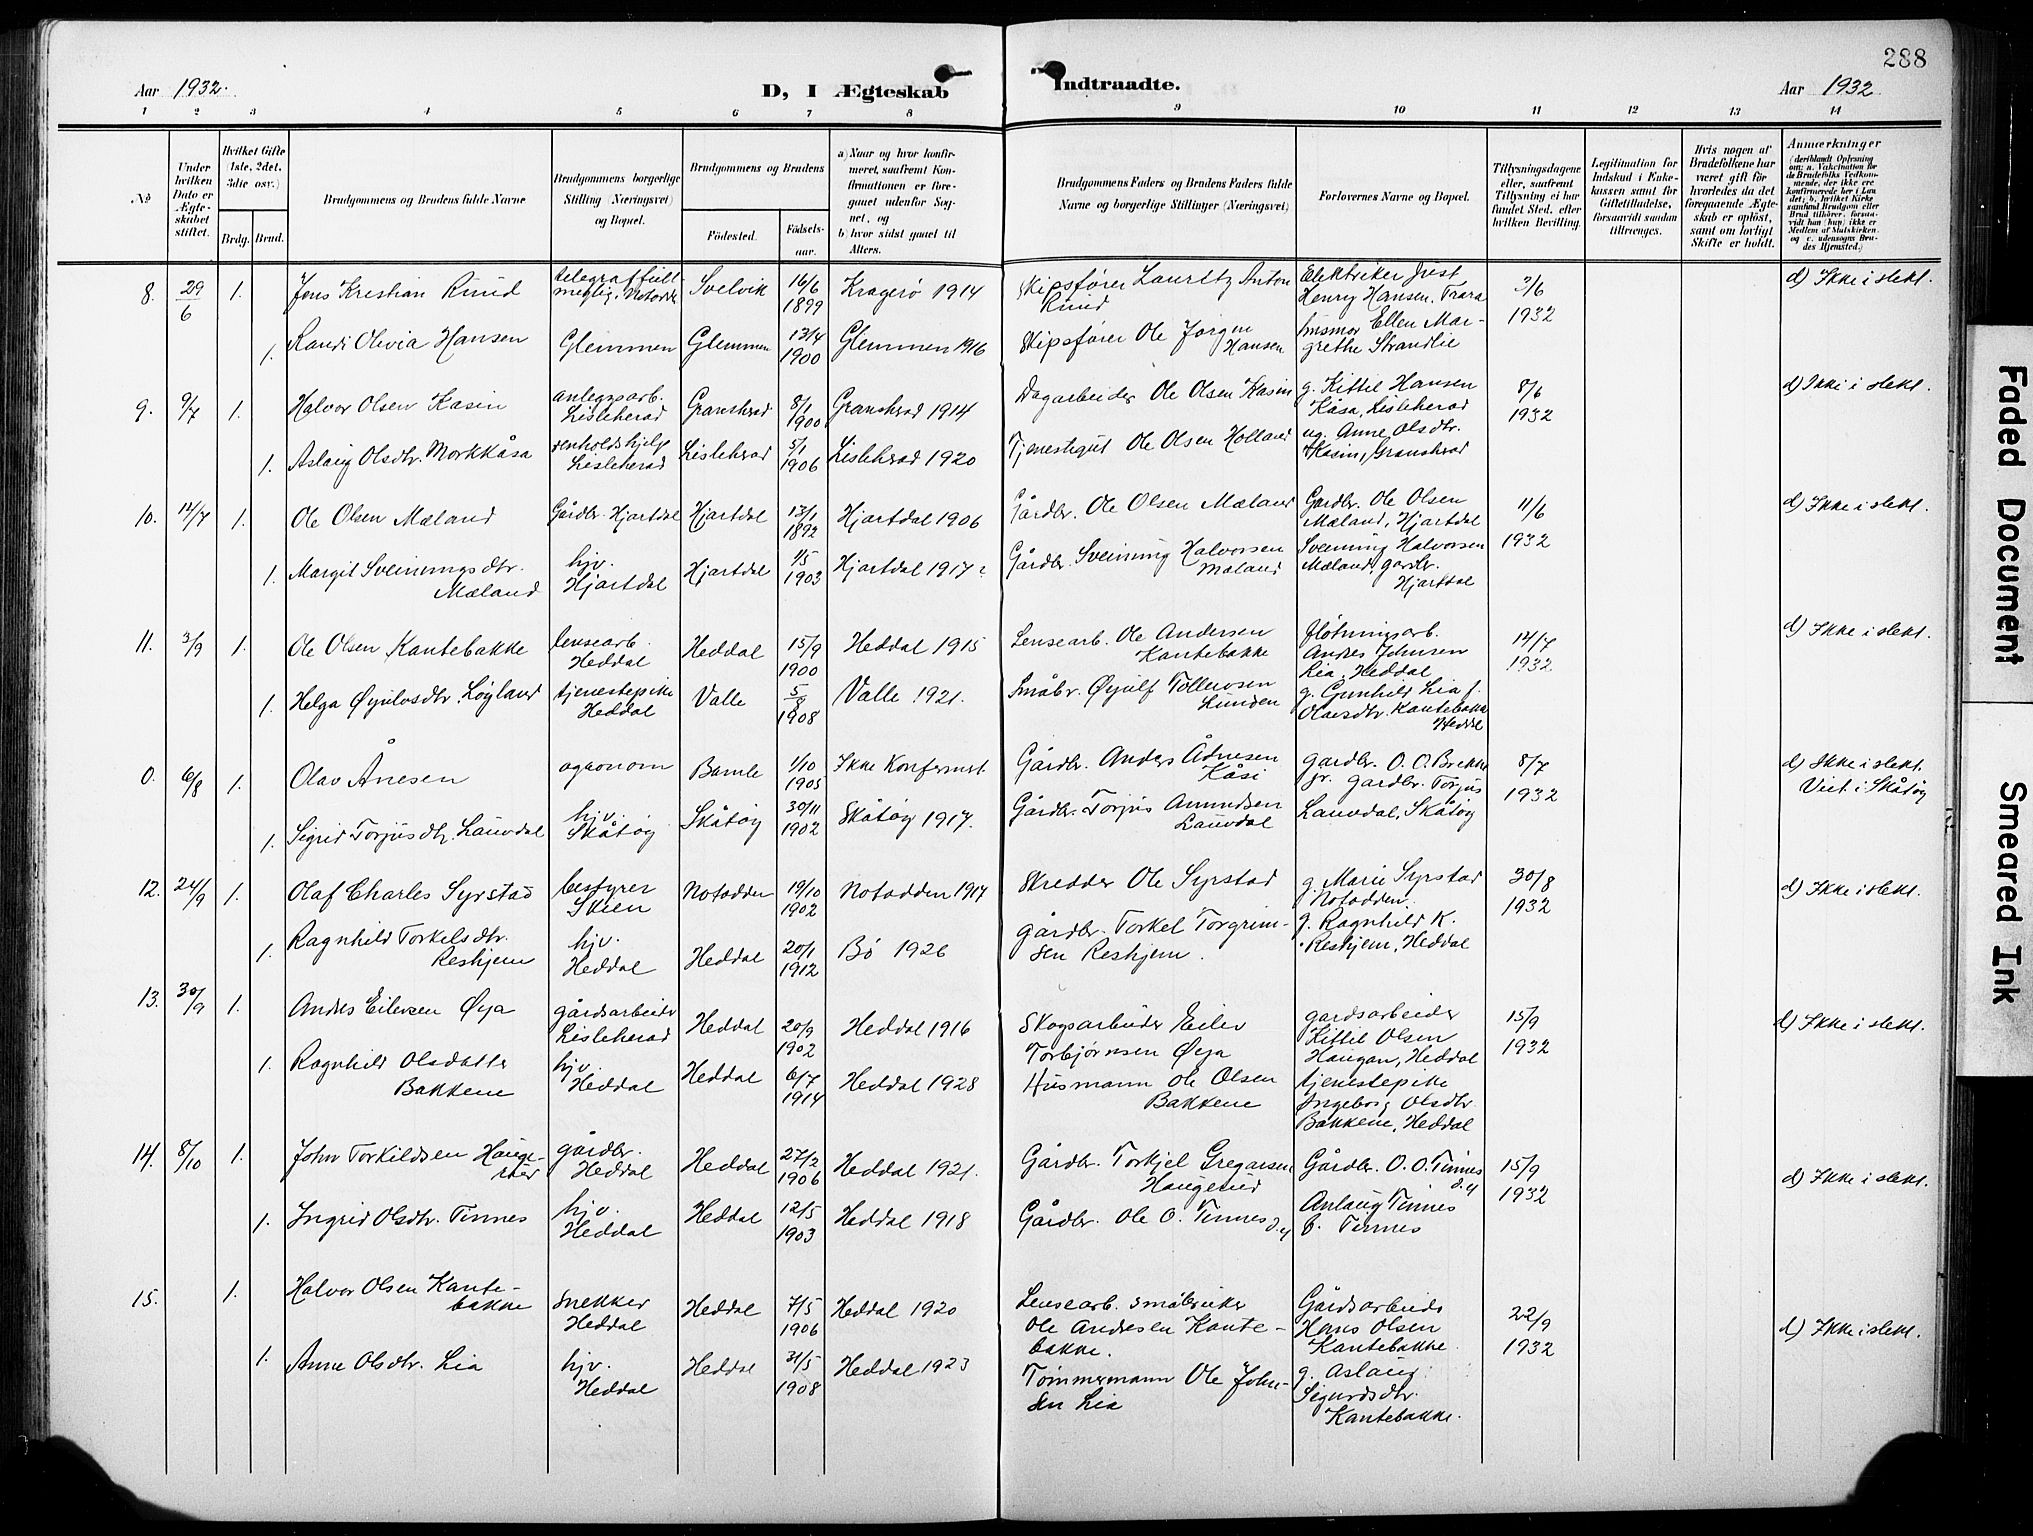 288
Aar 1932.
D, I Ægteskab Indtraadte.
Aar 1932
1 2 3 4 5 6 7 8 9 10 11 12 13 14
No
Under hvilken Dato er Ægteskabet stiftet.
Hvilket Gifte (1ste, 2det, 3die osv.)
Brdg. Brud.
Brudgommens og Brudens fulde Navne
Brudgommens borgerlige Stilling (Næringsvei) og Bopæl.
Brudgommens og Brudens
Fødested.
Fødselsaar.
a) Naar og hvor konfirmeret, saafremt Konfirmationen er foregaaet udenfor Sognet, og
b) hvor sidst gaaet til Alters.
Brudgommens Faders og Brudens Faders fulde Navne og borgerlige Stillinger (Næringsvei)
Forlovernes Navne og Bopæl.
Tillysningsdagene eller, saafremt Tillysning ei har fundet Sted, efter hvilken Bevilling.
Legitimation for Indskud i Enkekassen samt for Giftetilladelse, forsaavidt saadan tiltrænges.
Hvis nogen af Brudefolkene har været gift før hvorledes da det foregaaende Ægteskab er opløst, samt om lovligt Skifte er holdt.
Anmærkninger
8. 29/6 1. Jens Kristian Ruud
Svelvik 16/6 1899 Kragerø 1914
Skipsfører Lauritz Anton Ruud
Elektriker Just Henry Hansen, Trara
3/6 1932
d) Ikke i slekt.
1. Randi Olivia Hansen Glemmen Glemmen 13/4 1900 Glemmen 1916
Skipsfører Ole Jørgen Hansen
husmor Ellen Margrethe Strandlie
9. 9/7 1. Halvor Olsen Kasin
anleggsarb. Lisleherad
Gransherad 8/1 1900 Gransherad 1914
Dagarbeider Ole Olsen Kasin
g. Kittil Hansen Kåsa, Lisleherad
8/6 1932
d) Ikke i slekt.
1. Aslaug Olsdtr. Morkkåsa
renholdshjelp Lisleherad
Lisleherad 5/1 1906 Lisleherad 1920
Tjenestegut Ole Olsen
ug. Anne Olsdtr. Kasin, Gransherad
10. 1. Ole Olsen Mæland Gårdbr. Hjartdal Hjartdal 13/1 1892 Hjartdal 1906
Gårdbr. Ole Olsen Mæland
Gardbr. Ole Olsen Mæland, Hjartdal
11/6 1932
d) Ikke i slekt.
1. Margit Sveinungsdtr. Mæland
hjv. Hjartdal
Hjartdal 1/5 1903 Hjartdal 1917
Gårdbr. Sveinung Halvorsen Mæland
Sveinung Halvorsen Mæland, gardbr. Hjartdal
11. 3/9 1. Ole Olsen Kantebakke
lensearb. Heddal
Heddal 15/9 1900 Heddal 1915
Lensearb. Ole Andersen Kantebakke
fløtningsarb. Andres Johnsen Lia, Heddal
14/7 1932.
d) Ikke i slekt.
1. Helga Øyulvsdtr. Løyland
tjenestepike Heddal
Valle 5/8 1908 Valle 1921.
Småbr. Øyulf Tollevsen Lunden
g. Gunhild Lia f. Olavsdtr. Kantebakke Heddal
0. 6/8 1. Olav Ånesen agronom Bamle 1/10 1905 Ikke Konfermert.
Gårdbr. Anders Ådnesen Kåsi
gardbr. O. O. Brekke jr. gardbr. Torjus Lauvdal, Skåtøy
8/7 1932
d) Ikke i slekt.
Viet i Skåtøy
1. Sigrid Torjusdtr. Lauvdal
hjv. Skåtøy
Skåtøy 30/11 1902 Skåtøy 1917.
Gårdbr. Torjus Amundsen Lauvdal
12. 24/9 1. Olaf Charles Syrstad
bestyrer Skien
Notodden 19/10 1902 Notodden 1917
Skredder Ole Syrstad
g. Marie Syrstad Notodden.
30/8 1932
d) Ikke i slekt.
1. Ragnhild Torkelsdtr. Reshjem
hjv. Heddal
Heddal 20/1 1912 Bø 1926
gårdbr. Torkel Torgrimsen Reshjem.
g. Ragnhild K. Reshjem, Heddal
13. 30/9 1. Andres Eilevsen Øya
gårdsarbeider Lisleherad
Heddal 20/9 1902 Heddal 1916
Skogsarbeider Eilev Torbjørnsen Øya
gardsarbeider Kittil Olsen Haugan, Heddal
15/9 1932
d) Ikke i slekt.
1. Ragnhild Olsdatter Bakkene
hjv. Heddal
Heddal 6/7 1914 Heddal 1928
Husmann Ole Olsen Bakkene
tjenestepike Ingeborg Olsdtr. Bakkene, Heddal
14. 8/10 1. John Torkildsen
gårdbr. Heddal
Heddal 27/2 1906 Heddal 1921.
Gårdbr. Torkjel Gregarsen
Gårdbr. O. O. Tinnes d.y
15/9 1932
d) Ikke i slekt.
1. Ingrid Olsdtr. Tinnes
hjv. Heddal
Heddal 12/5 1903 Heddal 1918
Gårdbr. Ole O. Tinnes d.y
Anlaug Tinnes
Tinnes
15. 1. Halvor Olsen Kantebakke
snekker Heddal
Heddal 7/5 1906 Heddal 1920
Lensearb. småbruker Ole Andresen Kantebakke.
Gårdsarbeid. Hans Olsen Kantebakke.
22/9 1932
d) Ikke i slekt.
1. Anne Olsdtr. Lia
hjv. Heddal
Heddal 31/5 1908 Heddal 1923
Tømmermann Ole Johnsen Lia
g. Aslaug Sigurdsdtr. Kantebakke.
Faded Document
Smeared Ink